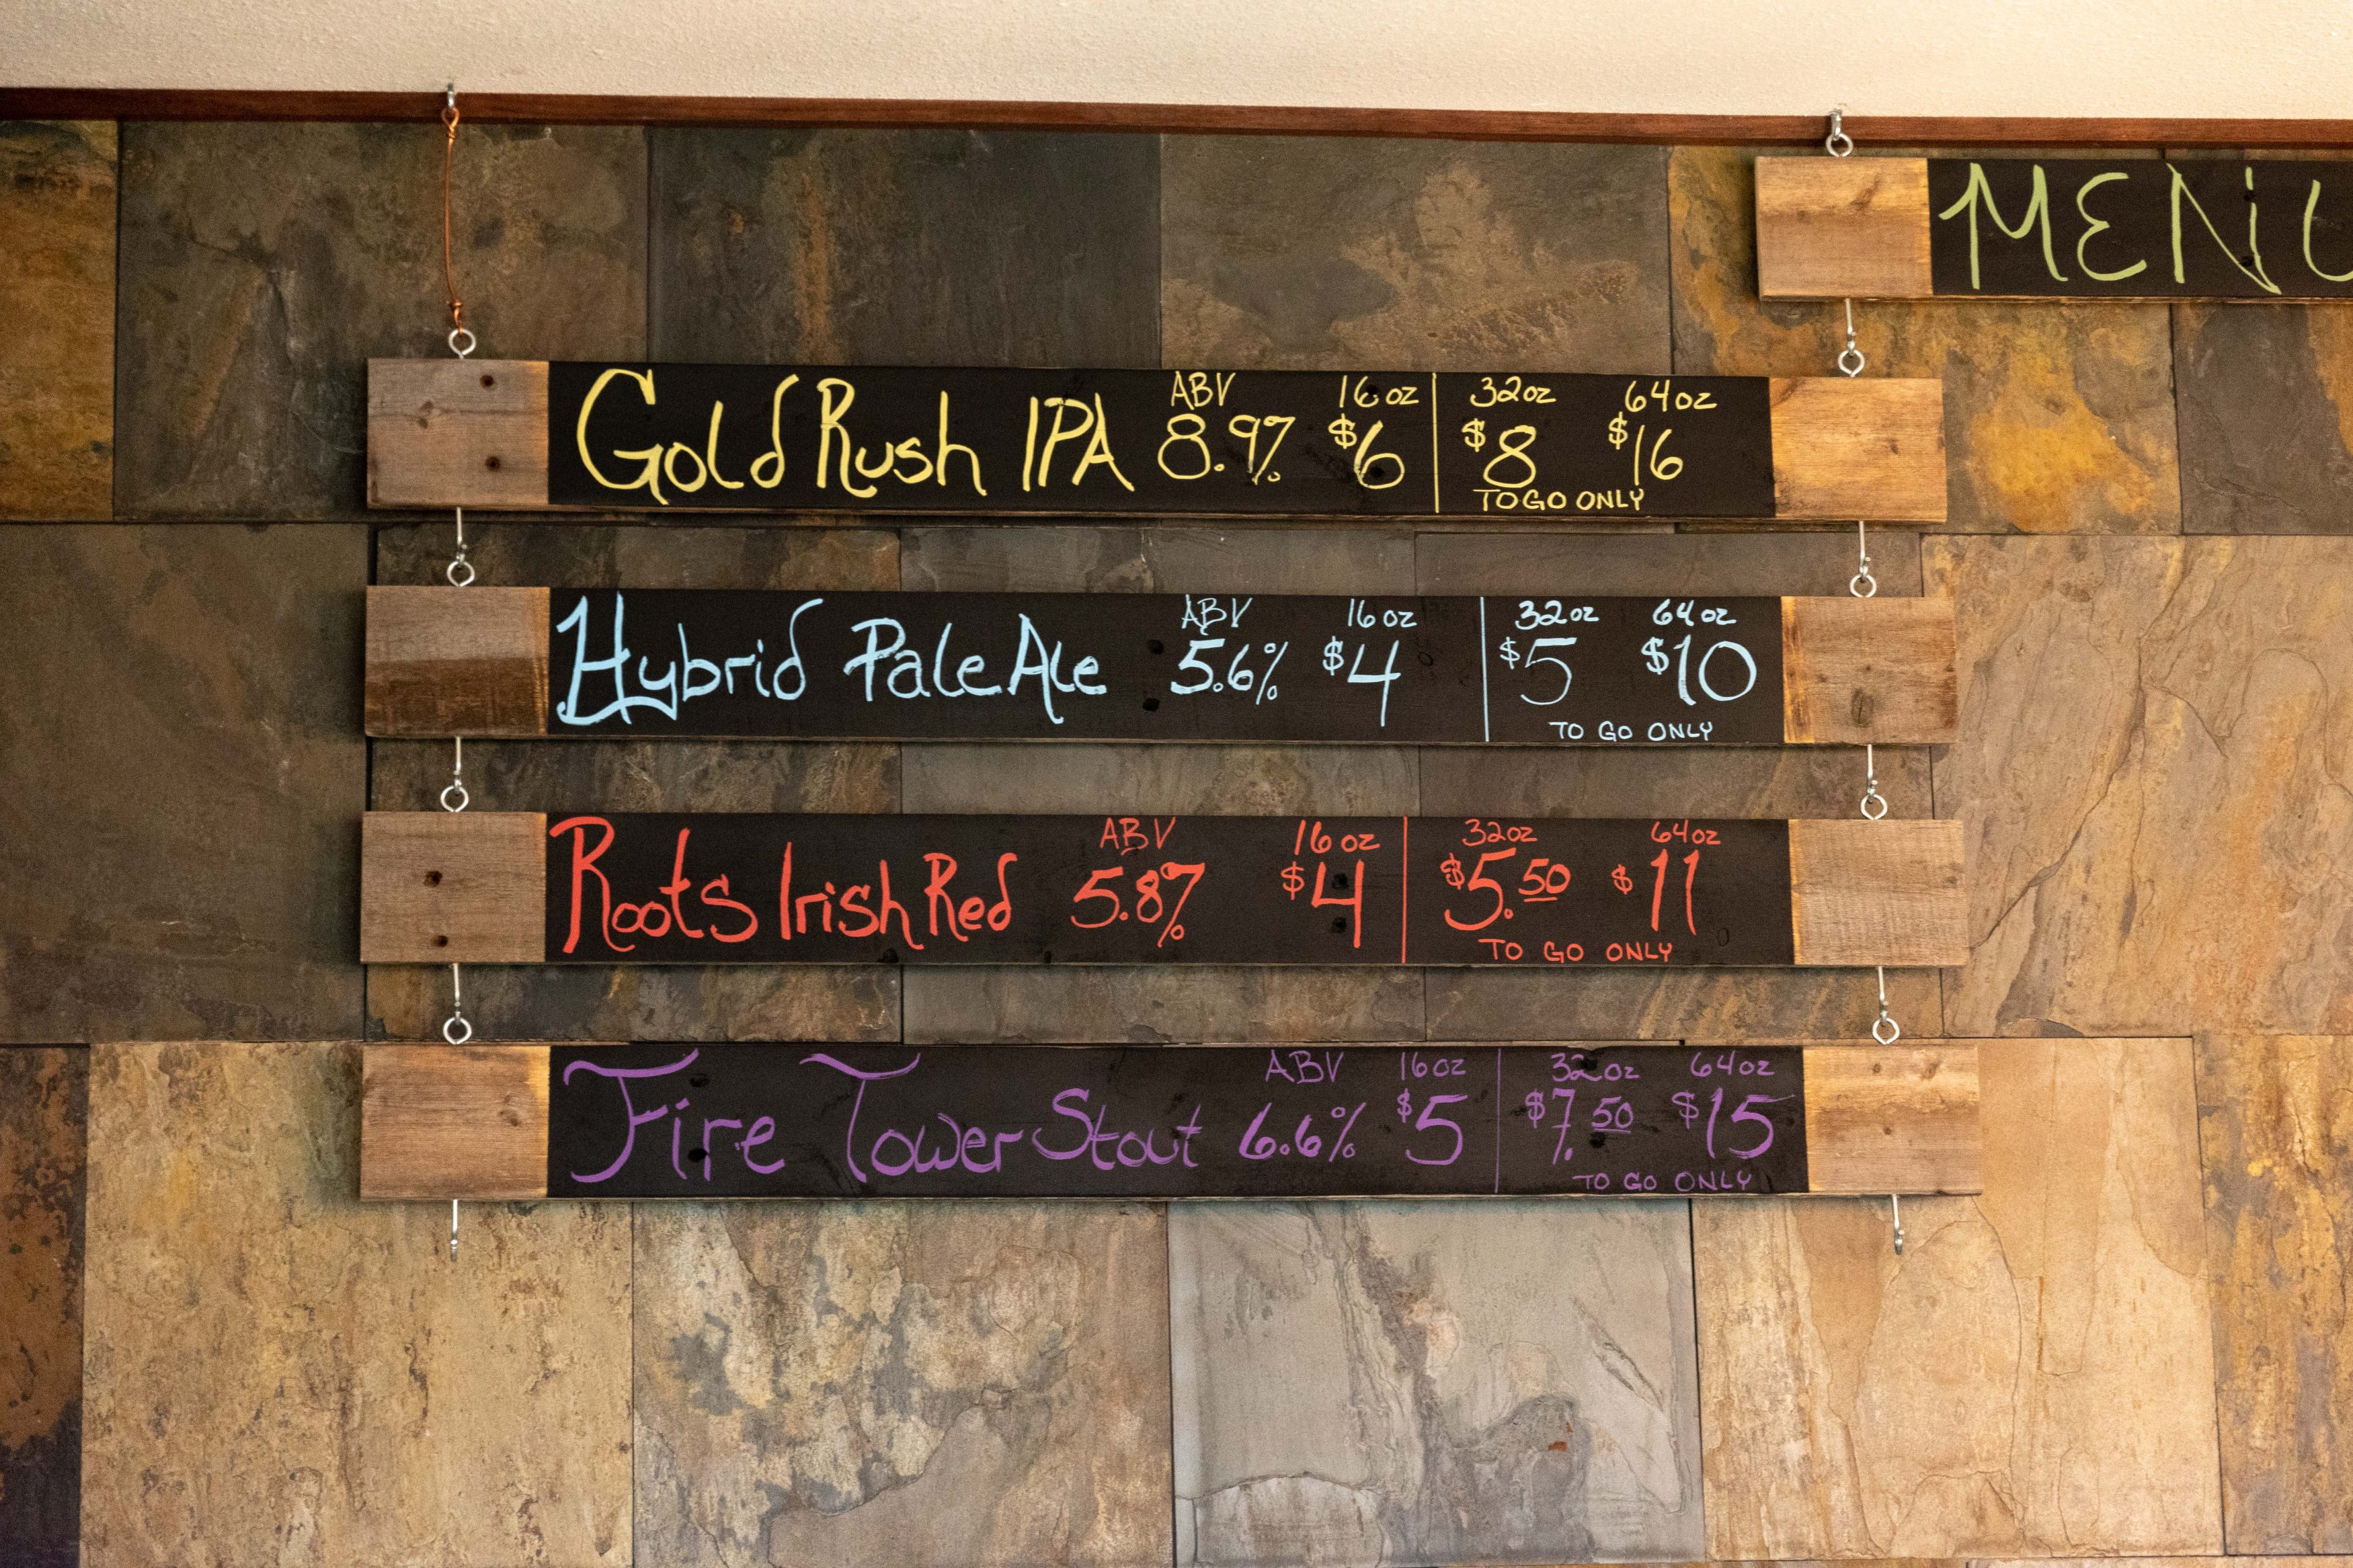 MENU
ABV 16oz 32oz 64oz
Gold Rush IPA 8.9% $6 $8 $16
TO GO ONLY
ABV 16oz 32oz 64oz
Hybrid Pale Ale 5.6% $4 $5 $10
TO GO ONLY
ABV 16oz 32oz 64oz
Roots Irish Red 5.8% $4 $5.50 $11
TO GO ONLY
ABV 16oz 32oz 64oz
Fire Tower Stout 6.6% $5 $7.50 $15
TO GO ONLY